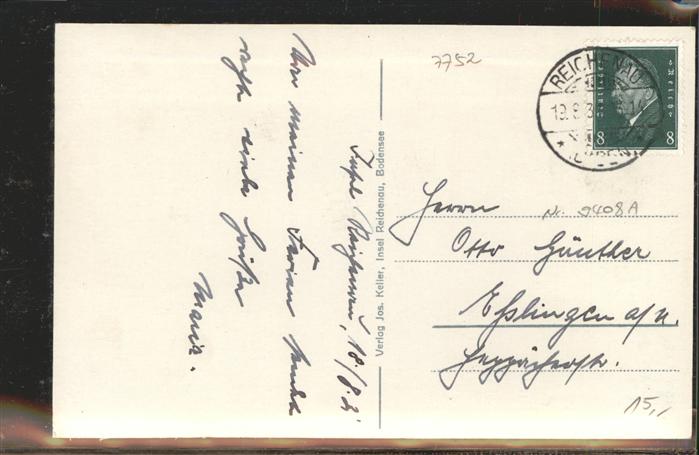 Insel Reichenau, 18./8.3
Von meinen Ferien sendet
recht viele Grüße
Maria.
Verlag Jos. Keller, Insel Reichenau, Bodensee
7752
REICHENAU
19.8.3
8 8
Herrn
Nr. 9408A
Otto Günther
Eßlingen a/N.
15,-